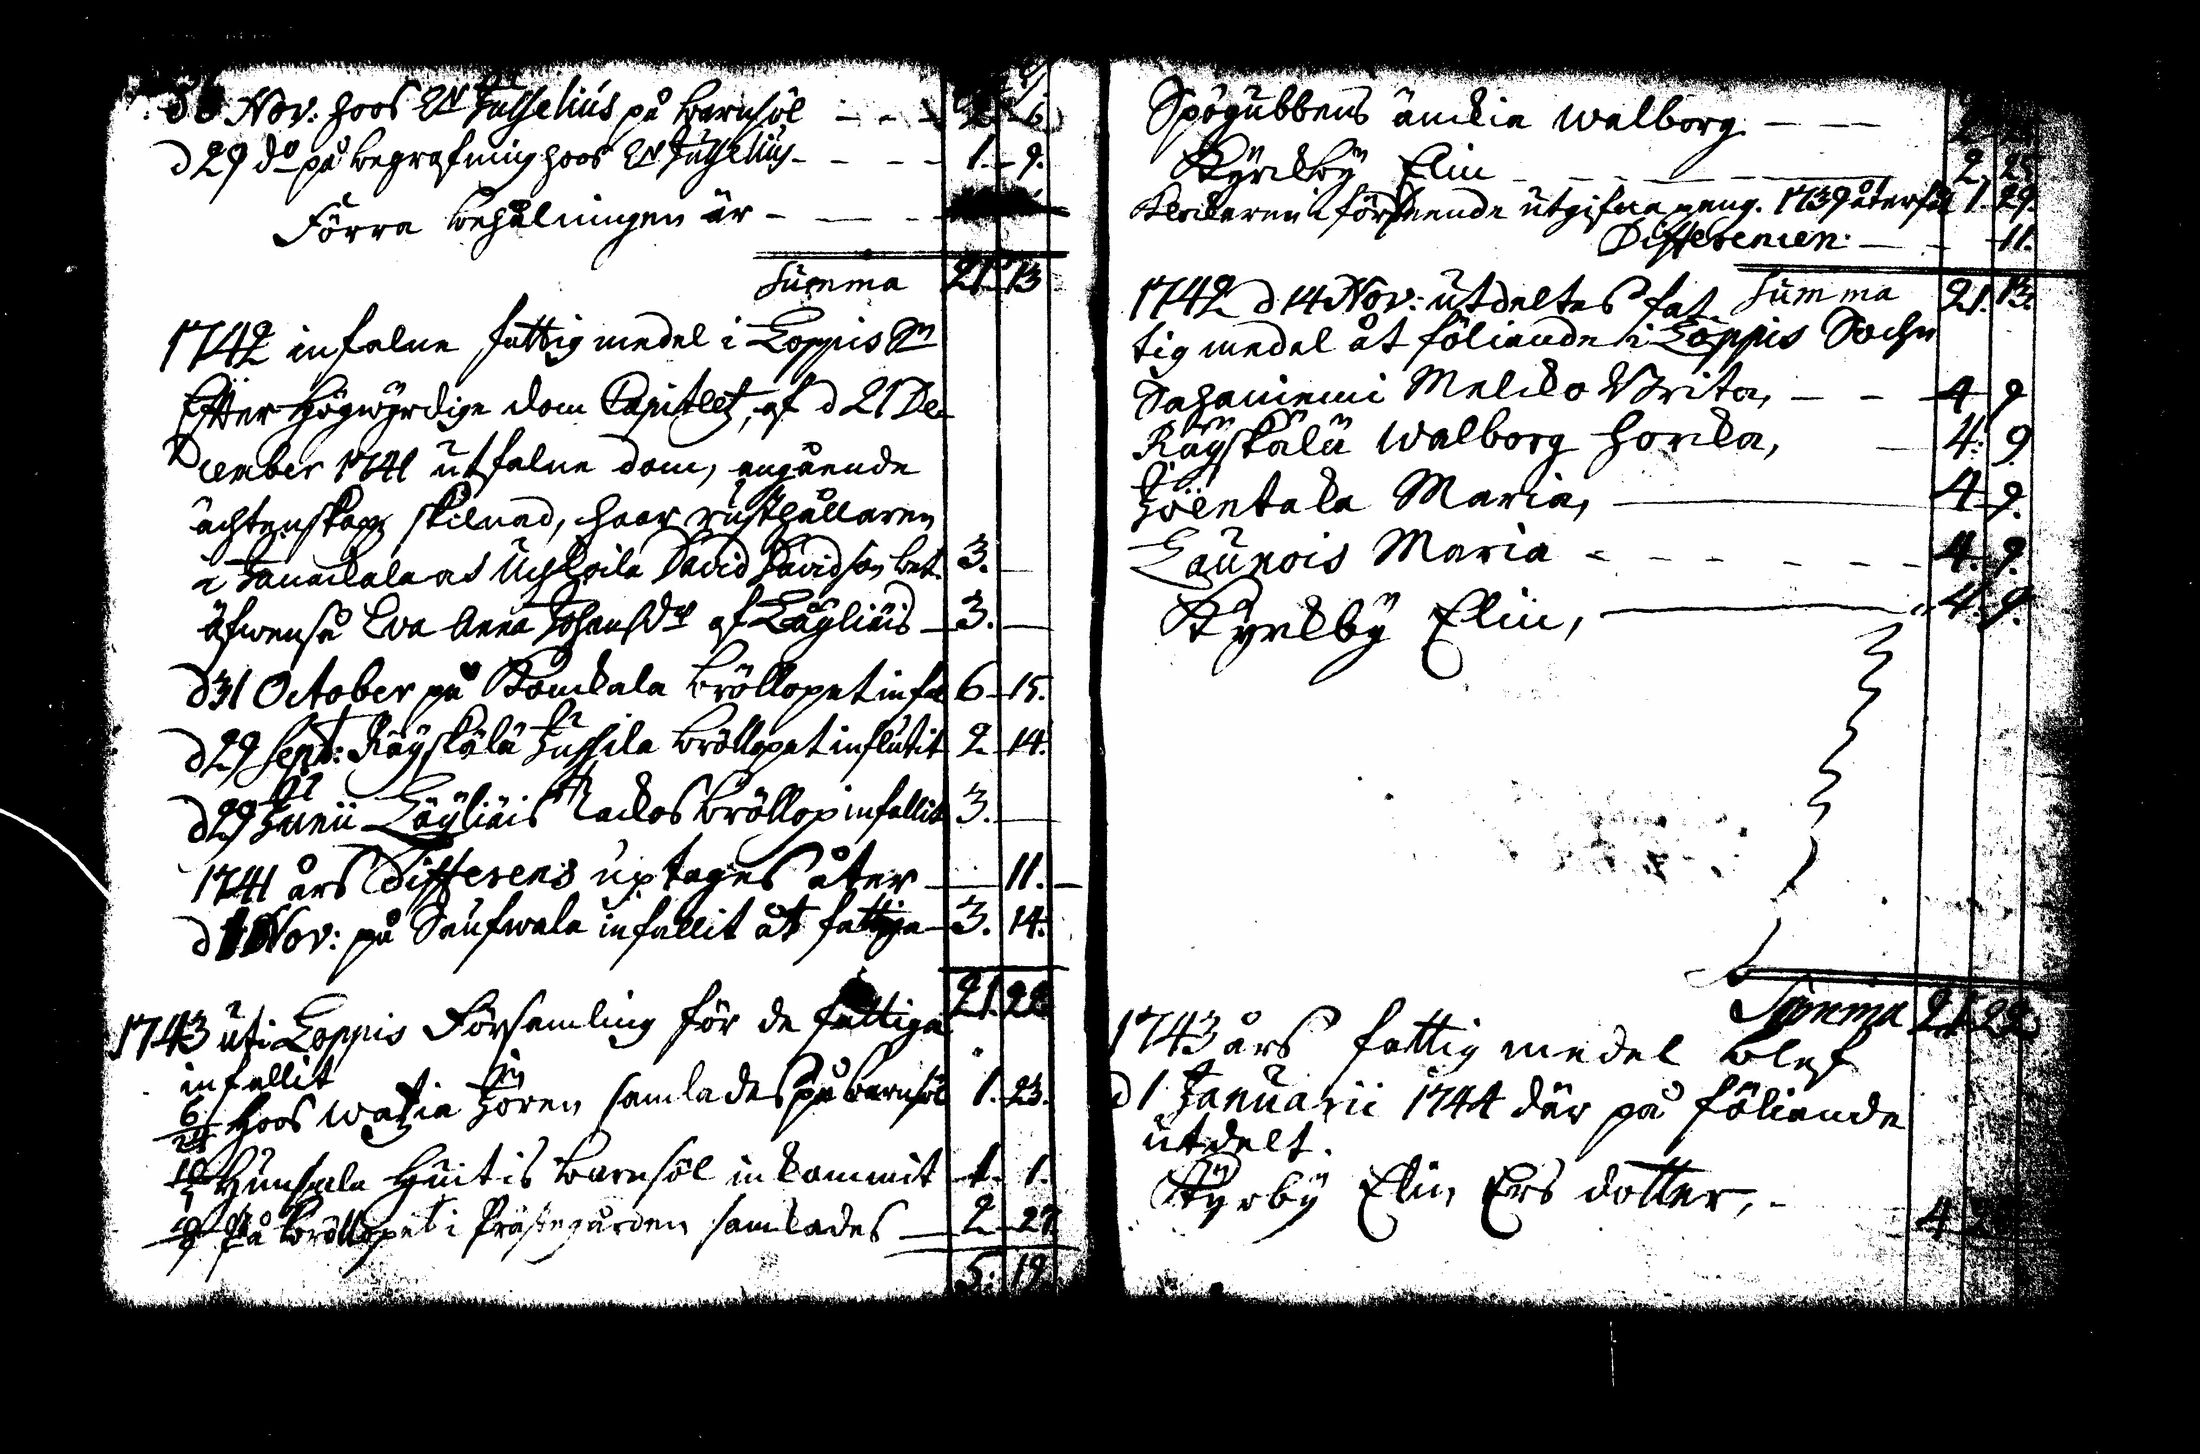 Nov: hoos Hr Juhselius på barnsöl - - - 6.
d 29 do på begrafning hoos Hr Juhselius - - - - 1. 9.
Förra behålningen är - - -
Summa 21. 13
1742 infalne fattig medel i Loppis Sn
Efter Högwyrdige Dom Capitlet, af d 21 De
cember 1741 utfalne dom, angående
ächtenskaps skilnad, haar rusthållaren
i David Davidson bet. 3. —
äfwenså Eva Anna Johansdr af Läyliäis — 3. —
d 31 October på Kouckala bröllopet infal 6. 15.
d 29 Sept: Räyskälä Jussila bröllopet influtit 2. 14.
d 29 Junii Läyliäis Lackos bröllop infallit 3. —
1741 års Differens uptages åter — 11. —
d Nov: på Saufwala infallit åt fattiga — 3. 14.
21. 22
1743 uti Loppis Församling för de fattiga
infallit
6/21 Hoos Watia Jören samlades på barnsöl 1. 23.
Hunsala Huitis barnsöl inkommit 1. 1.
På bröllopet i Prästegården samlades — 2. 27
5. 19
Spögubbens änckia Walborg - - -
Kyrckby Elin - - - 2. 25
Klockaren förskeende utgifna peng. 1739 återfåt 1. 29.
Differencen. — - 11.
Summa 21. 13.
1742 d 14 Nov: utdeltes fat
tig medel åt föliande i Loppis Sochn
Sajaniemi Melcko Brita, - - 4. 9
Räyskälä Walborg Horcka, — 4. 9
Jöentaka Maria, — 4. 9.
Launois Maria - - - - - - 4. 9.
Kyrckby Elin, — 4. 9.
Summa 21. 22
1743 års fattig medel blef
d 1 Januarii 1744 där på föliande
utdelt.
Kyrby Elin Ers dotter, - 4